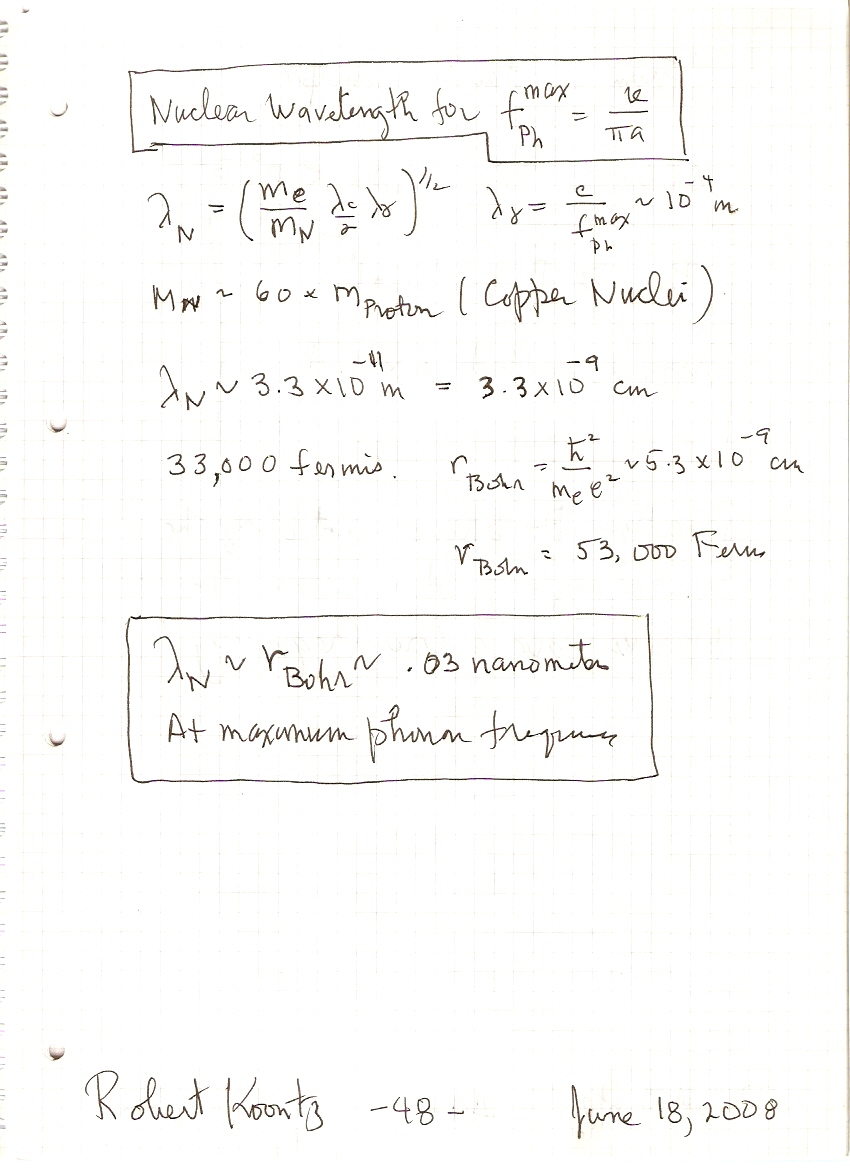 Nuclear Wavelength for f_Ph^max = v/πa
λ_N = (m_e/m_N λ_c/2 λ_γ)^1/2 λ_γ = c/f_ph^max ~ 10^-4 m
M_N ~ 60 × m_Proton (Copper Nuclei)
λ_N ~ 3.3 × 10^-11 m = 3.3 × 10^-9 cm
33,000 fermis. r_Bohr = ħ²/m_e e² ~ 5.3 × 10^-9 cm
r_Bohr = 53,000 Fermis
λ_N ~ r_Bohr ~ .03 nanometer
At maximum phonon frequency
Robert Koontz -48- June 18, 2008